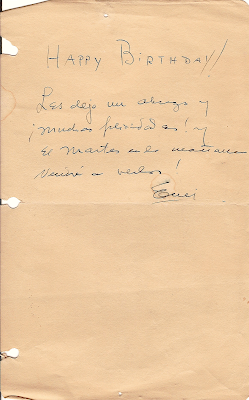 HAPPY BIRTHDAY!
Les dejo un abrazo y
¡muchas felicidades! y
el martes en la mañana
vendré a verlos!